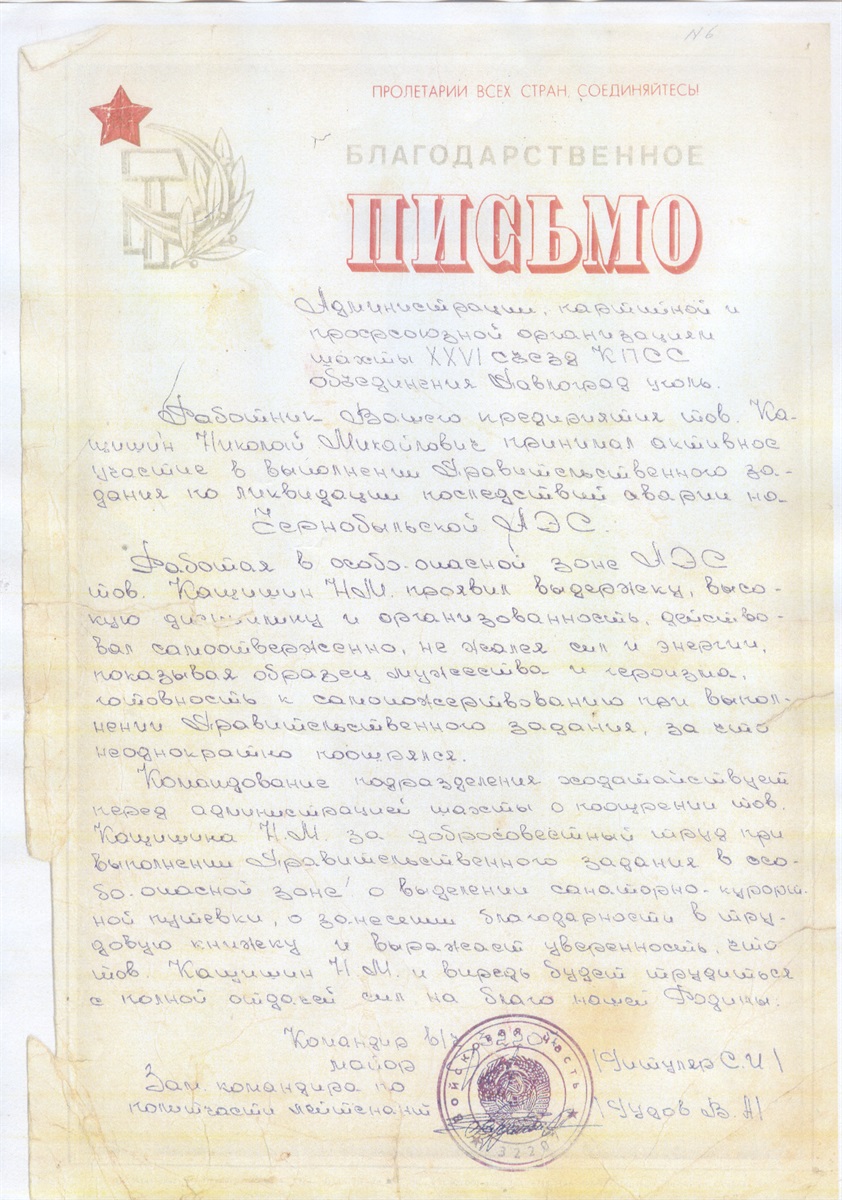 N6
ПРОЛЕТАРИИ ВСЕХ СТРАН, СОЕДИНЯЙТЕСЬ!
БЛАГОДАРСТВЕННОЕ
ПИСЬМО
Администрации, партийной и
профсоюзной организациям
шахты XXVI съезд КПСС
объединения Павлоград уголь.
Работник Вашего предприятия тов. Ка-
щишин Николай Михайлович принимал активное
участие в выполнении Правительственного за-
дания по ликвидации последствий аварии на
Чернобыльской АЭС.
Работая в особо-опасной зоне АЭС
тов. Кащишин Н.М. проявил выдержку, высо-
кую дисциплину и организованность, действо-
вал самоотверженно, не жалея сил и энергии,
показывая образец мужества и героизма,
готовность к самопожертвованию при выпол-
нении Правительственного задания, за что
неоднократно поощрялся.
Командование подразделения ходатайствует
перед администрацией шахты о поощрении тов.
Кащишина Н.М. за добросовестный труд при
выполнении Правительственного задания в осо-
бо-опасной зоне о выделении санаторно-курорт-
ной путевки, о занесении благодарности в тру-
довую книжку и выражает уверенность, что
тов. Кащишин Н.М. и впредь будет трудиться
с полной отдачей сил на благо нашей Родины.
Командир в/ч 3220
майор /Титуляр С.И/
Зам. командира по
политчасти лейтенант /Гудов В.А/
Войсковая часть
N 3220